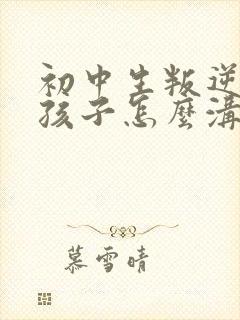 初中生叛逆
孩子怎麼溝
慕雪晴